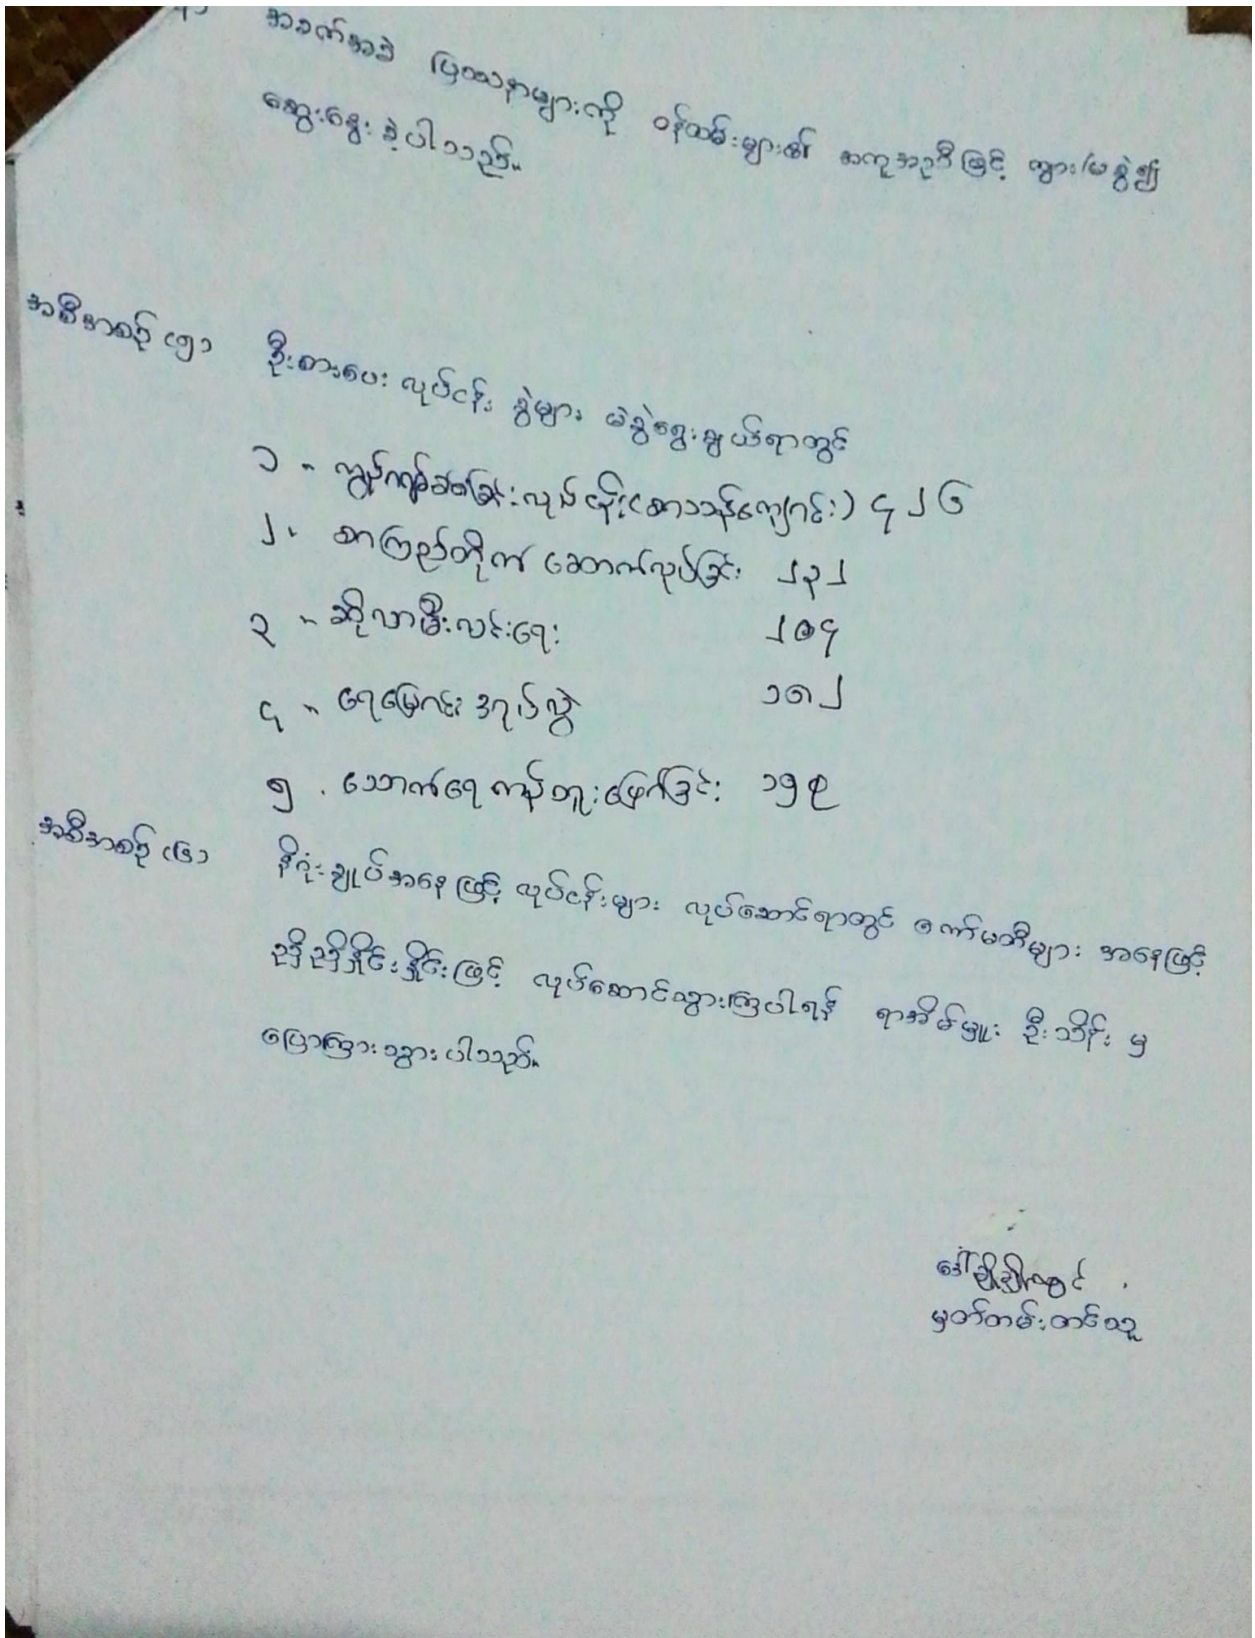 အခက်အခဲ ပြဿနာများကို ဝန်ထမ်းများ၏ အကူအညီဖြင့် ကျား/မ ခွဲ၍
ဆွေးနွေးခဲ့ပါသည်။
အစီအစဉ် (၅) ဦးစားပေး လုပ်ငန်း ခွဲများ မဲခွဲရွေးချယ်ရာတွင်
၁။ ကွန်ကရစ်ခင်းခြင်းလုပ်ငန်း(စာသင်ကျောင်း) ၄၂၆
၂။ စာကြည့်တိုက် ဆောက်လုပ်ခြင်း ၂၃၂
၃။ ဆိုလာမီးလင်းရေး ၂၀၄
၄။ ရေမြောင်း အုတ်လွှဲ ၁၈၂
၅။ သောက်ရေ ကန်တူးဖော်ခြင်း ၁၅၉
အစီအစဉ် (၆) နိဂုံးချုပ်အနေဖြင့် လုပ်ငန်းများ လုပ်ဆောင်ရာတွင် ကော်မတီများ အနေဖြင့်
ညီညီနှိုင်းနှိုင်းဖြင့် လုပ်ဆောင်သွားကြပါရန် ရာအိမ်မှူး ဦးသိန်း မှ
ပြောကြားသွားပါသည်။
ဒေါ်
မှတ်တမ်းတင်သူ